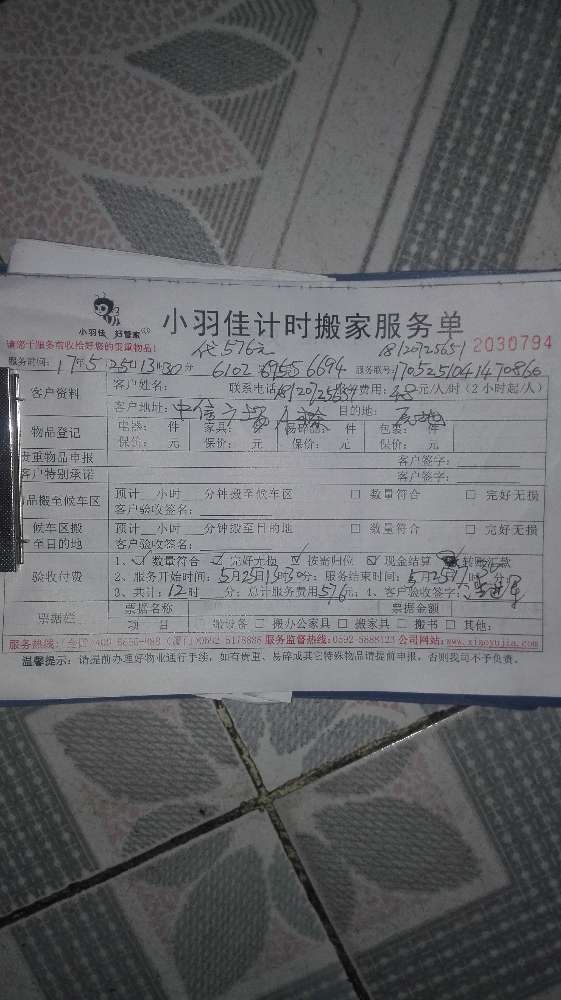 小羽佳 好管家
小羽佳计时搬家服务单
请您于服务前收拾好您的贵重物品!
代576元
18120725651 2030794
服务时间: 17年5月25日13时30分 服务单号: 1705251041470866
客户资料
客户姓名: 联系电话 费用: 48元/人/时 (2小时起/人)
客户地址: 中信广场 目的地:
物品登记
电器: 件 家具: 件 易碎品: 件 包裹: 件
保价: 元 保价: 元 保价: 元 保价: 元
贵重物品申报 客户签字:
客户特别承诺 客户签字:
物品搬至候车区
预计 小时 分钟搬至候车区 □ 数量符合 □ 完好无损
客户验收签名:
候车区搬至目的地
预计 小时 分钟搬至目的地 □ 数量符合 □ 完好无损
客户验收签名:
验收付费
1、☑ 数量符合 ☑ 完好无损 ☑ 按需归位 ☑ 现金结算 转账汇款
2、服务开始时间: 5月25日13时 分; 服务结束时间: 5月25日 时 分;
3、共计: 12时 分; 总计服务费用576元 4、客户验收签字:
票据栏
票据名称 票据金额
项 目 □ 搬设备 □ 搬办公家具 □ 搬家具 □ 搬书 □ 其他:
服务热线: 全国 (厦门)0592-5178888 服务监督热线:0592-5888123 公司网站:www.xiaoyujia.com
温馨提示: 请提前办理好物业进行手续, 如有贵重、易碎或其它特殊物品请提前申报, 否则我司不予负责。